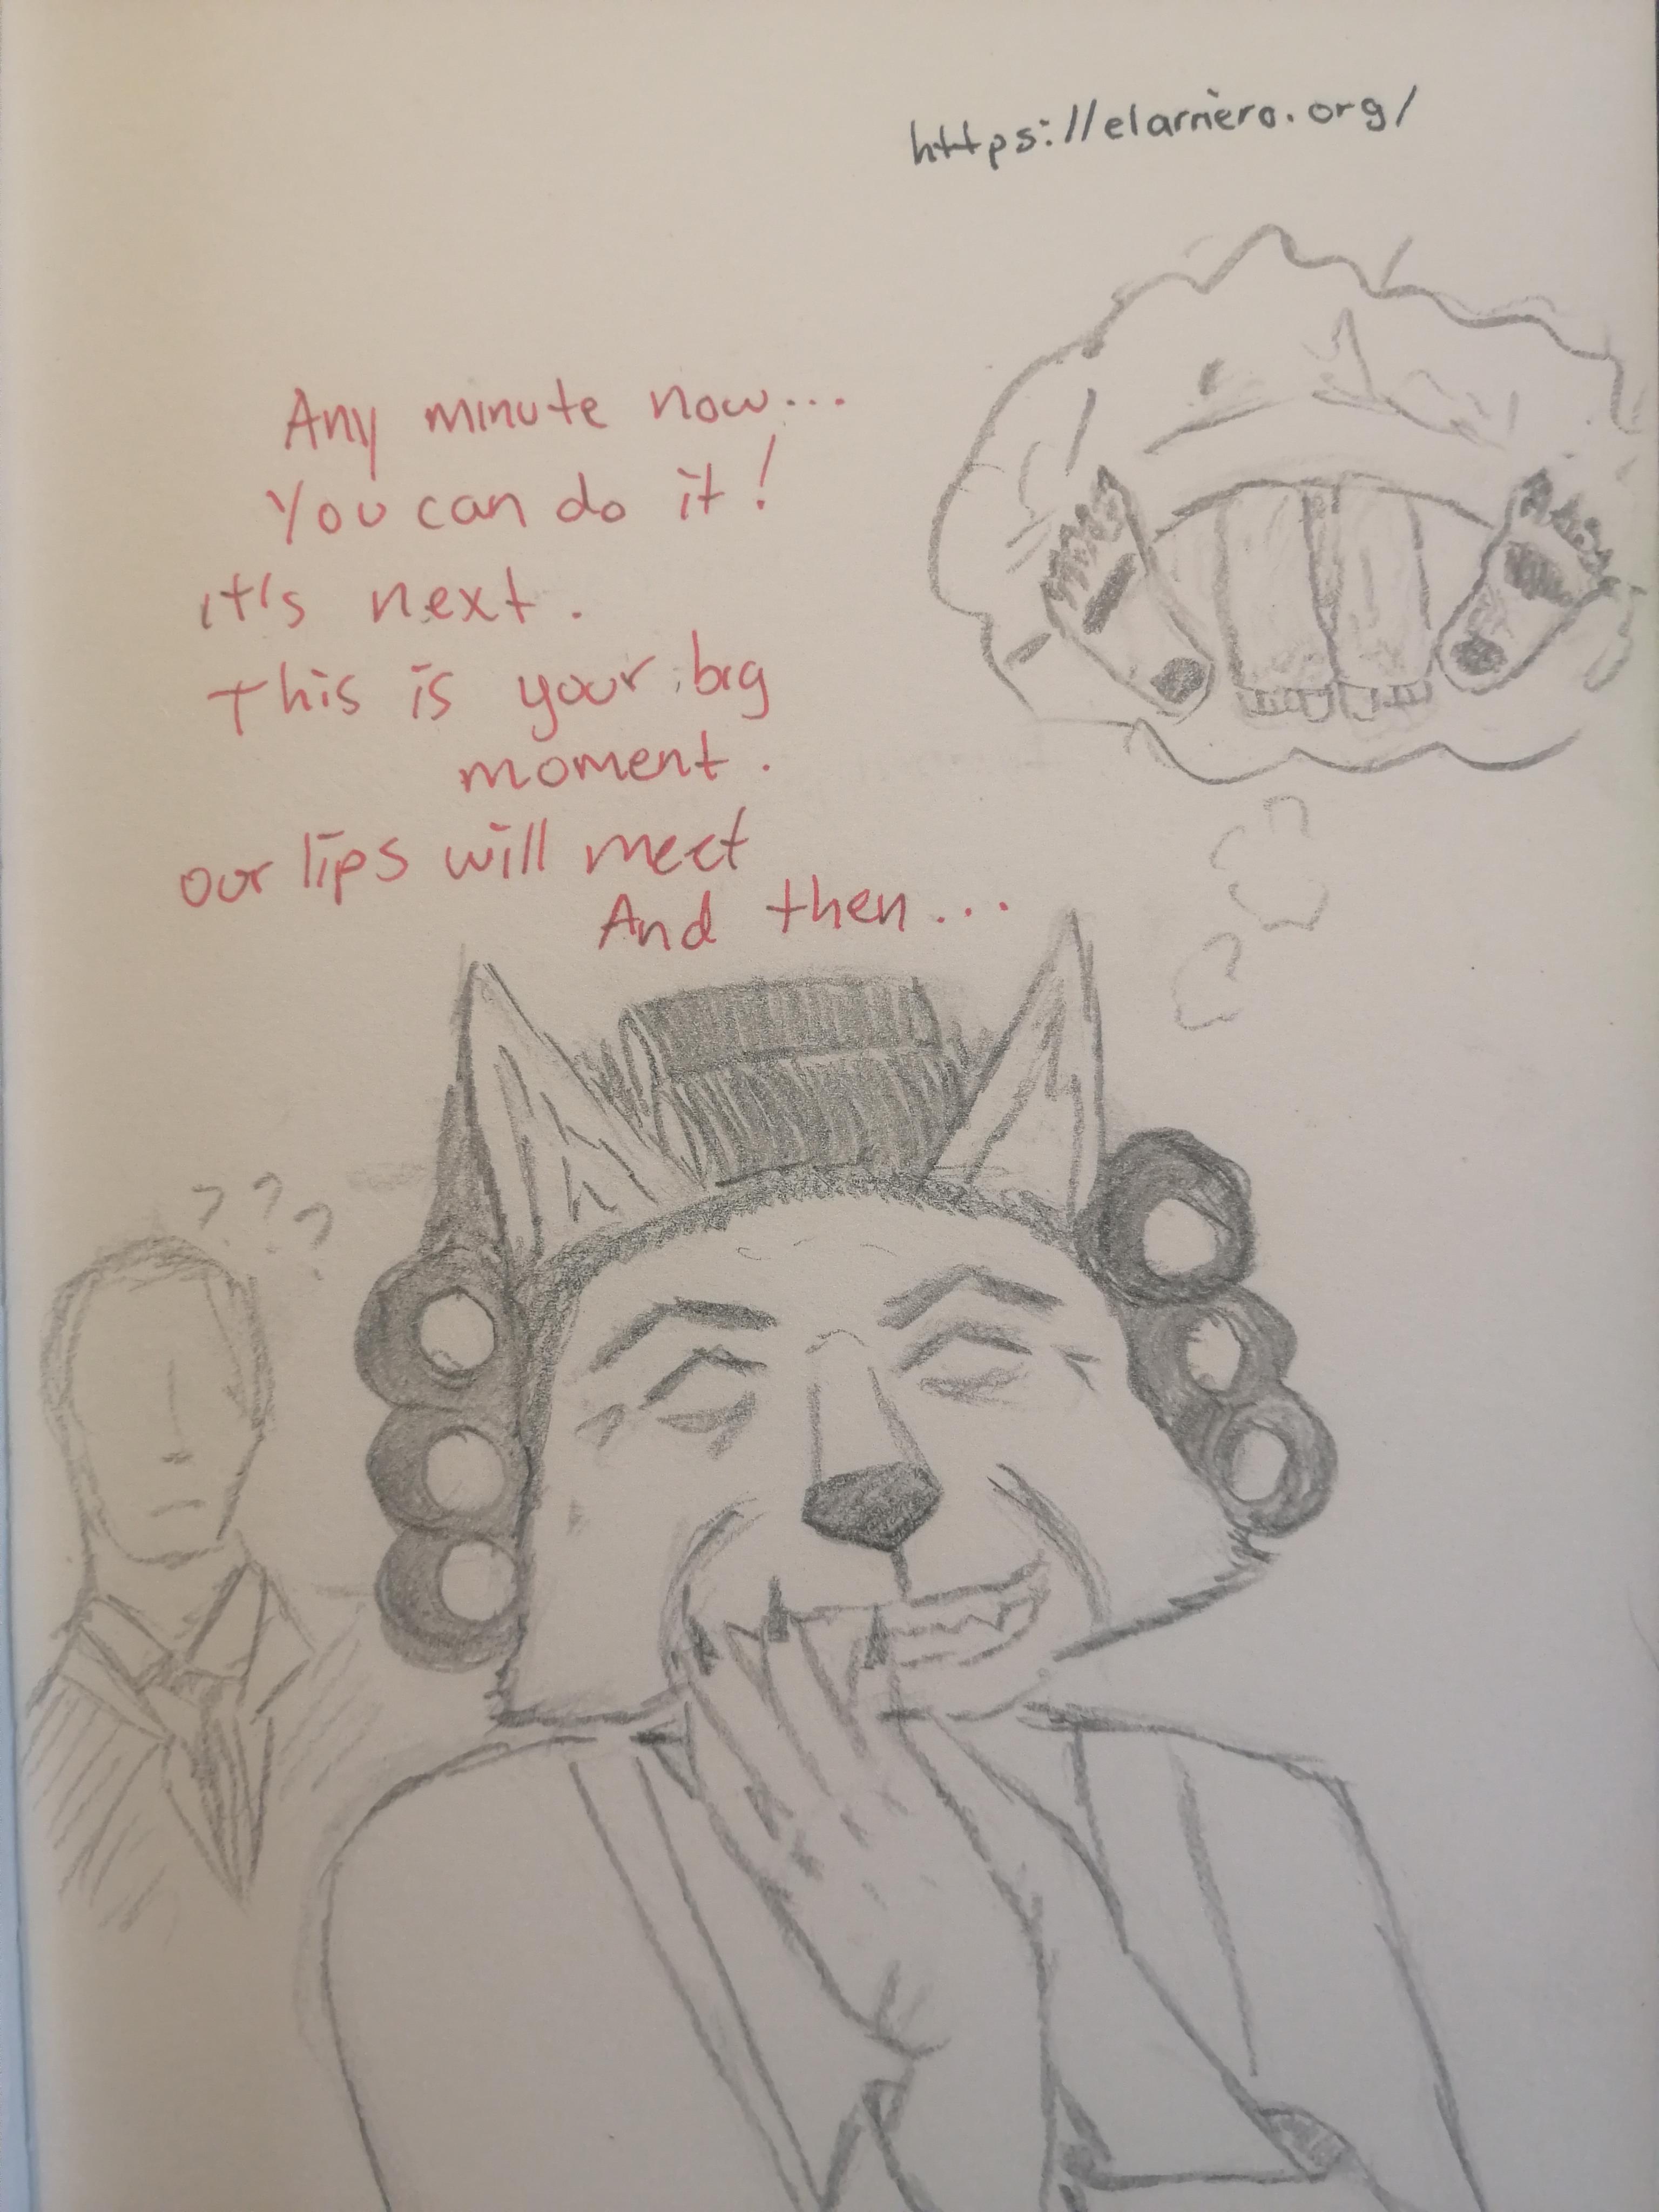 https://elarriero.org/
Any minute now...
You can do it!
it's next.
This is your big
moment.
our lips will meet
And then...
???